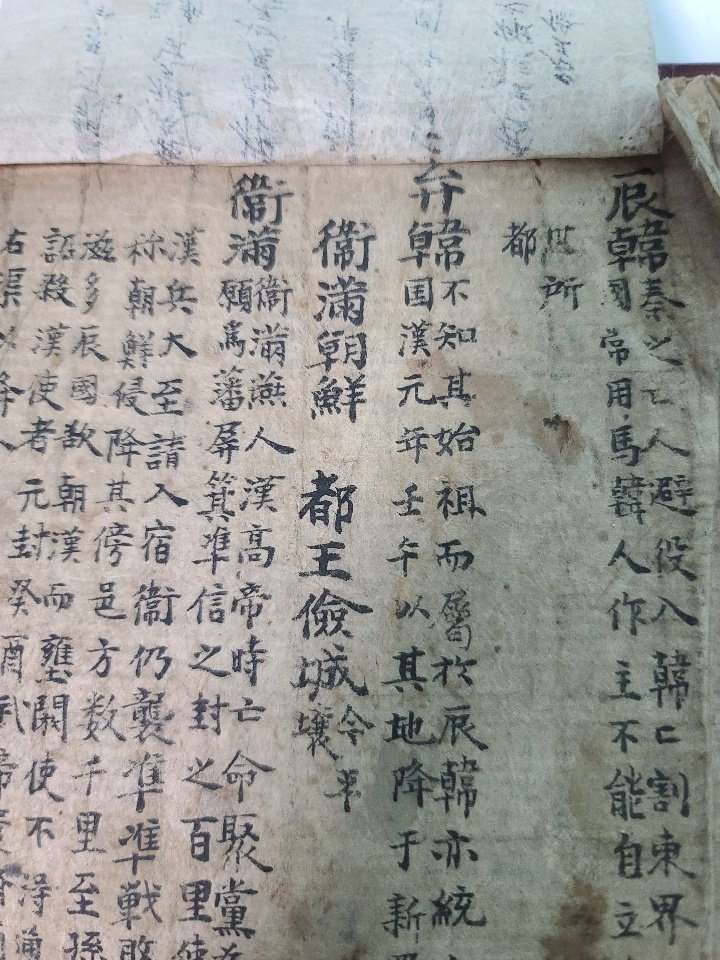 辰韓秦之亡人避役入韓〻割東界
國常用馬韓人作主不能自立
所
都
弁韓不知其始祖而屬於辰韓亦統
国漢元年壬午以其地降于新
衛滿朝鮮 都王儉城今平
壤
衛滿衛滿燕人漢高帝時亡命聚黨
願為藩屏箕準信之封之百里使
漢兵大至請入宿衛仍襲準準戰敗
称朝鮮侵降其傍邑方數千里至孫
滋多辰國欲朝漢而壅闕使不得通
詔殺漢使者元封癸酉武帝
右渠以降